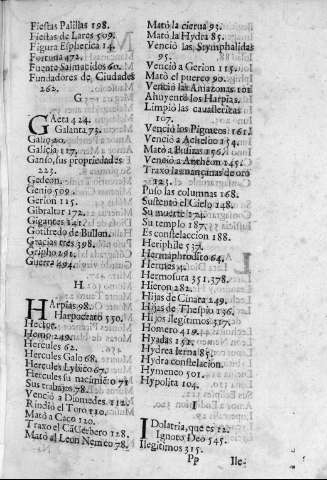 Fiestas Palilas 198.
Fiestas de Lares 509.
Figura Espherica 14.
Fortuna 472.
Fuente Salmatidos 60.
Fundadores de Ciudades
262.
G
GAeta 424.
Galanta 73.
Galo 20.
Galicia 117.
Ganso, sus propriedades
223.
Gedeon.
Genio 509.
Gerion 115.
Gibraltar 172.
Gigantes 141.
Gotifredo de Bullon.
Gracias tres 398.
Gripho 291.
Guerra 494.
H
HArpias 98.
Harpocrato 530.
Hecate.
Hemo 249.
Hercules 62.
Hercules Galo 68.
Hercules Lybico 67.
Hercules su nacimiẽto 71
Sus trabajos 78.
Venciò a Diomedes 112.
Rindiò el Toro 110.
Matò a Caco 120.
Traxo el Cã Cerbero 128.
Matò al Leon Nemeo 78.
Matò la cierua 93.
Matò la Hydra 85.
Venciò las Stymphalidas
95.
Venciò a Gerion 115.
Matò el puerco 90.
Venciò las Amazonas 101
Ahuyentò las Harpias.
Limpiò las cauallerizas
107.
Venciò los Pigmeos 161.
Venciò a Acheloo 154.
Matò a Busiris 156.
Venciò a Antheon 145.
Traxo las mançanas de oro
123.
Puso las columnas 168.
Sustentò el Cielo 148.
Su muerte 174.
Su templo 187.
Es constelaccion 188.
Heriphile 537.
Hermaphrodito 64.
Hermes 4.
Hermosura 351.378.
Hieron 282.
Hijas de Cinara 249.
Hijas de Thespio 136.
Hijos ilegitimos 317.
Homero 419.
Hyadas 152.
Hydra lerna 85.
Hydra constelacion.
Hymeneo 501.
Hypolita 104.
I
IDolatria, que es 12.
Ignoto Deo 545.
Ilegitimos 315.
Pp Ile-